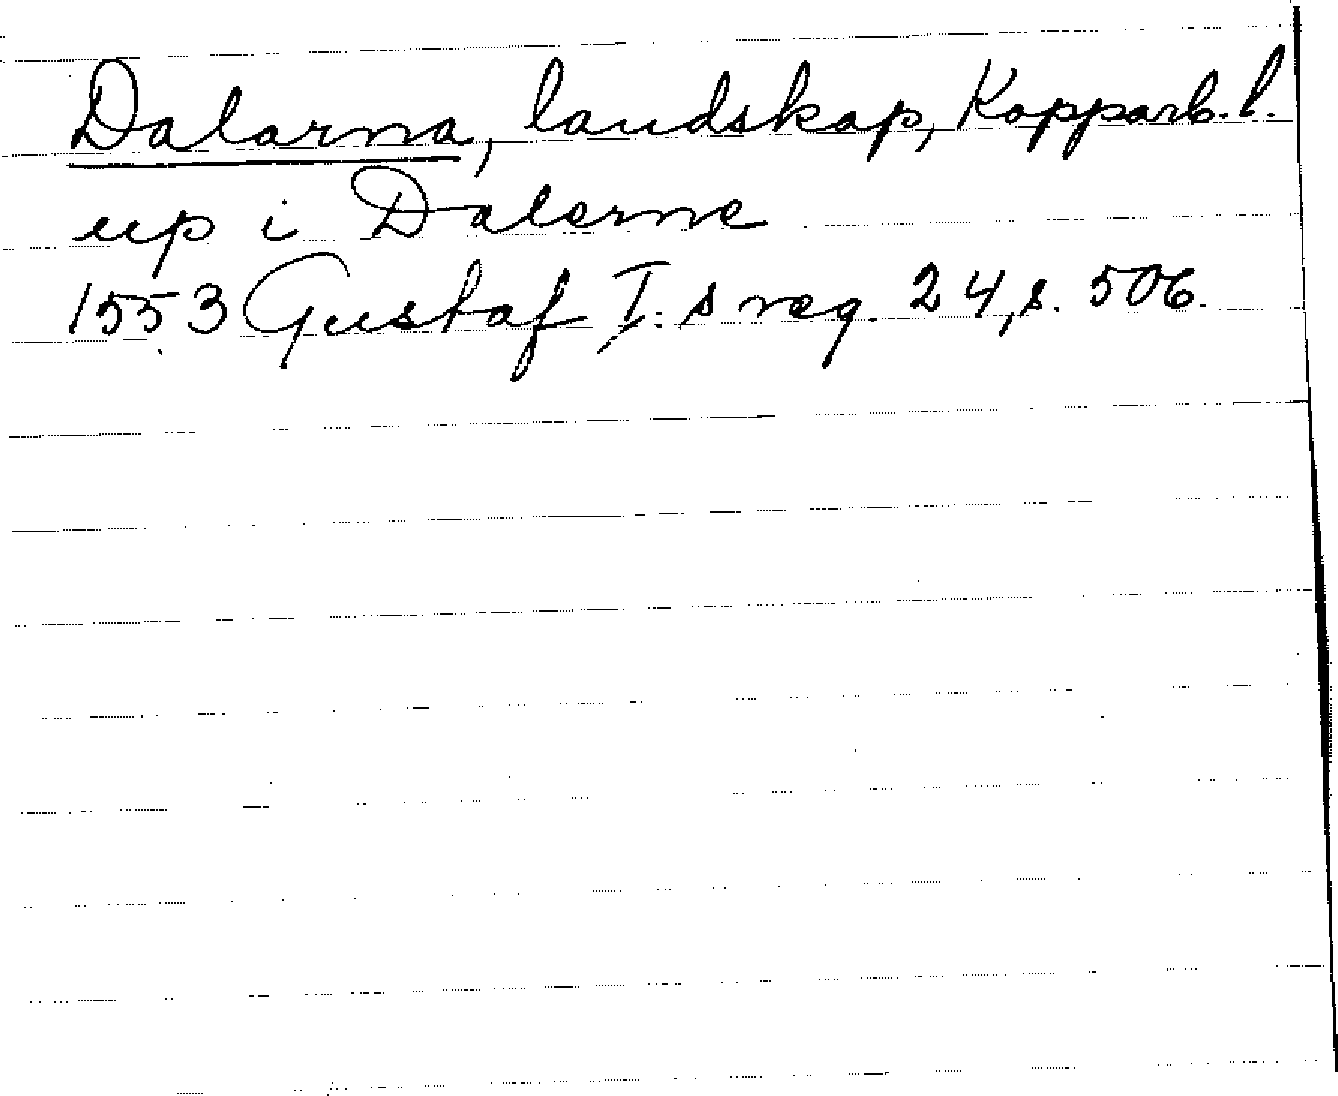 Dalarna, landskap, Kopparb. l.
up i Dalerne
1553 Gustaf I:s reg. 24, s. 506.